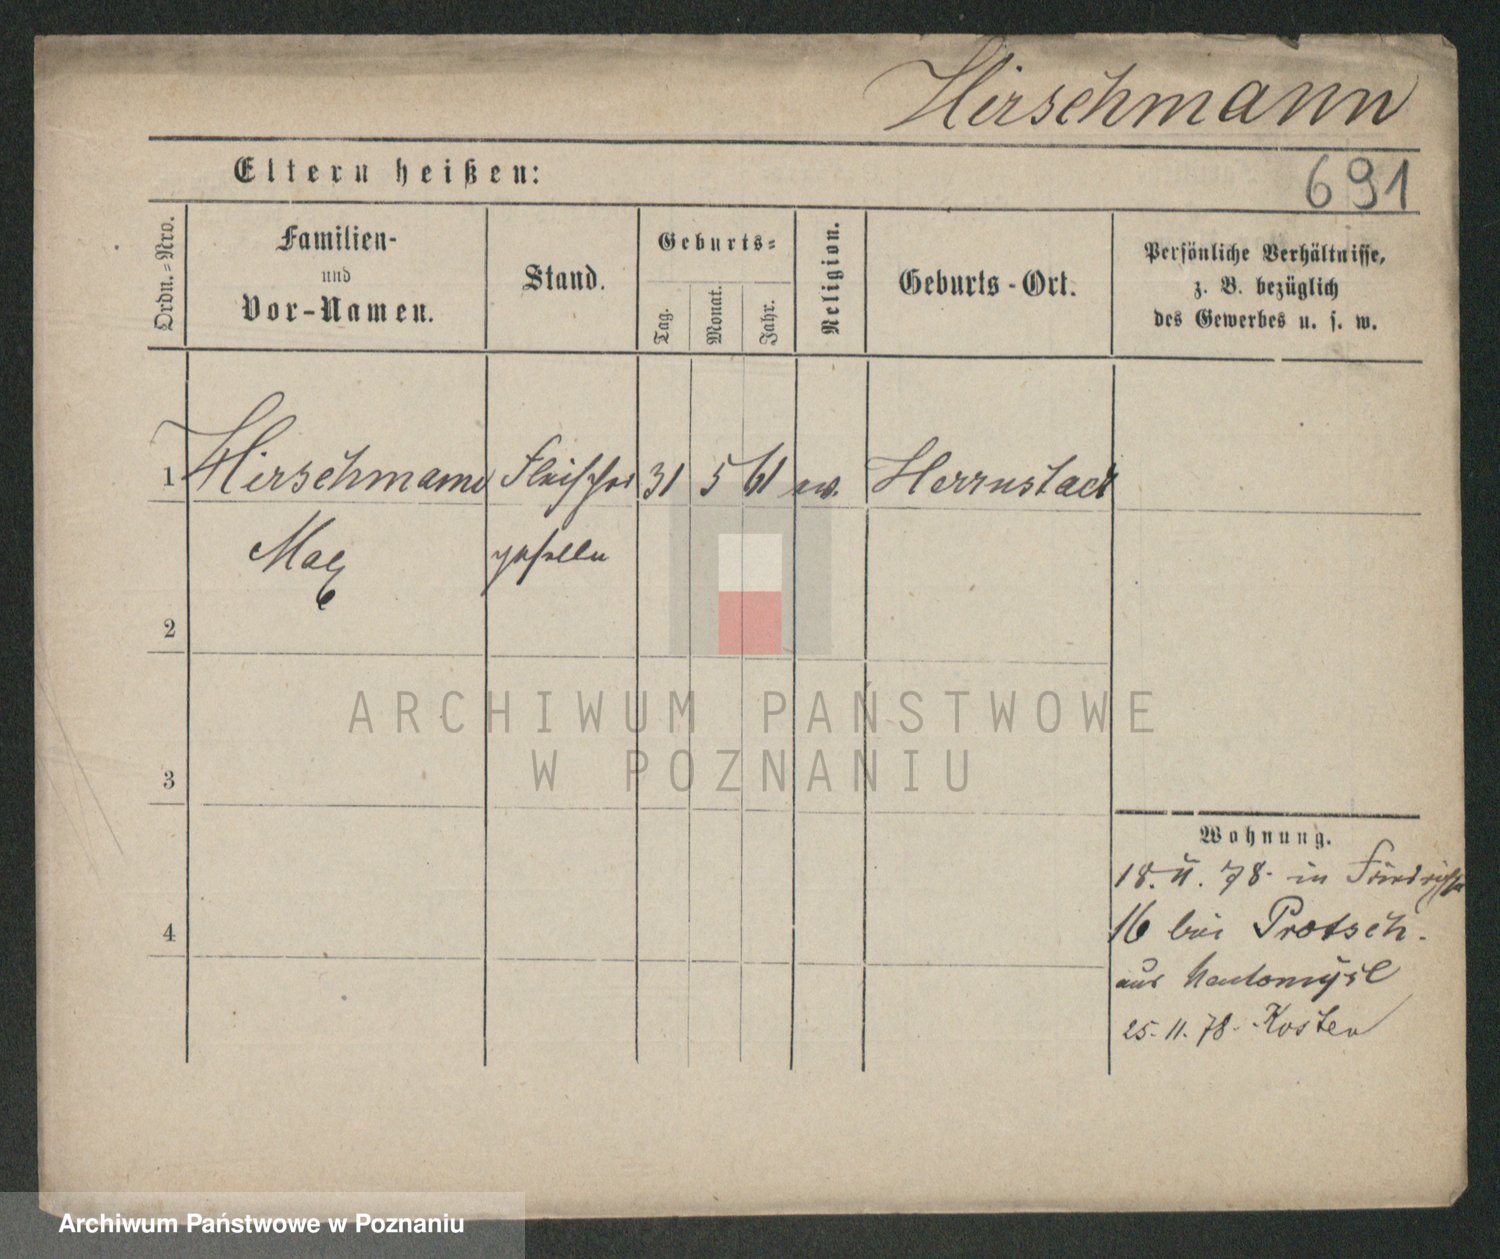 Hirschmann
Eltern heißen:
691
Ordn.-Nro.
Familien-
und
Vor-Namen.
Stand.
Geburts-
Tag.
Monat.
Jahr.
Religion.
Geburts-Ort.
Persönliche Verhältnisse,
z. B. bezüglich
des Gewerbes u. s. w.
1 Hirschmann Fleischer 31 5 61 ev. Herrnstadt
Max geselle
2
ARCHIWUM PAŃSTWOWE
W POZNANIU
3
Wohnung.
18. 11. 78. in Friedrichstr
16 bei Protsch.
4
aus Neutomysl
25. 11. 78. Kosten
Archiwum Państwowe w Poznaniu